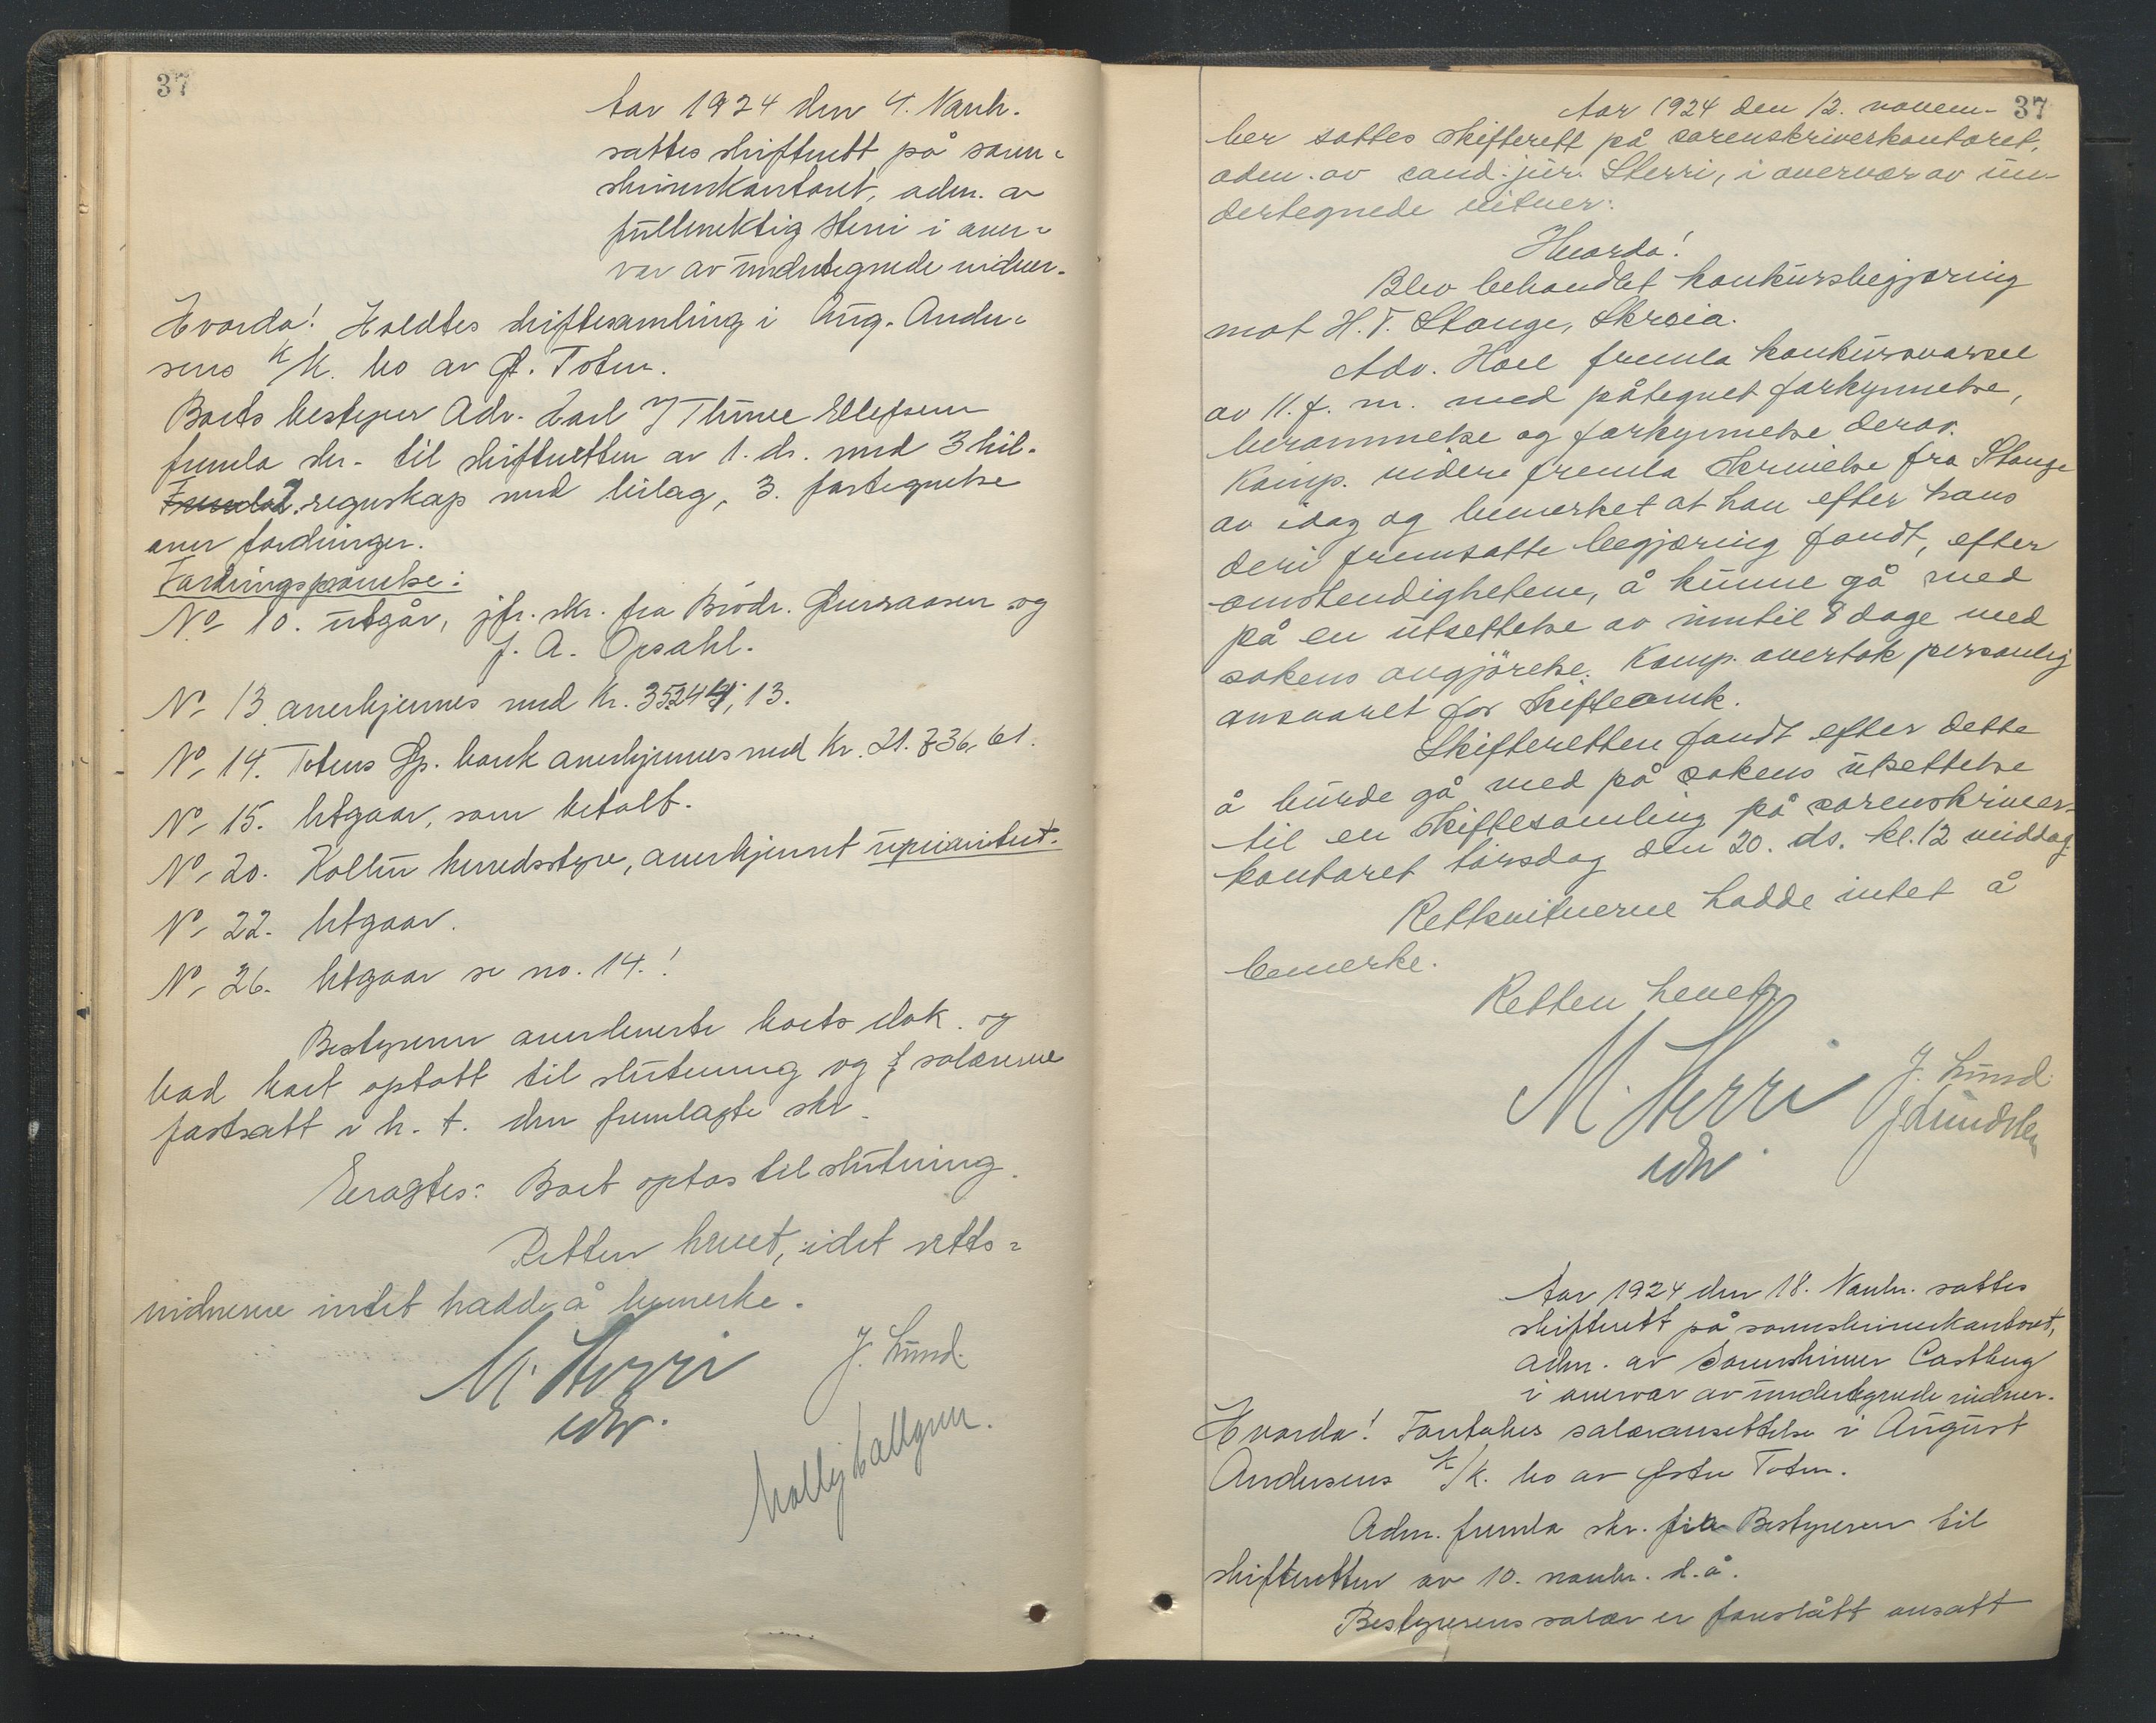 37
Aar 1924 den 4. Novbr.
sattes skifterett på soren-
skriverkontoret, adm. av
fullmektig Sterri i over-
vær av undertegnede vidner.
Hvorda! Holdtes skiftesamling i Aug. Ander-
sens K/K. bo av Ø. Toten.
Boets bestyrer Adv. Carl Thinee Ellefsen
fremla skr. til skifteretten av 1. ds. med 3 bil.
2. regnskap med bilag, 3. fortegnelse
over fordringer.
Fordringsprøvelse:
No 10. utgår, jfr. skr. fra Brödr. og
J. A. Opsahl.
No 13 anerkjennes med Kr. 13.
No 14. Totens Sp. bank anerkjennes med Kr. 21.736,61.
No 15. Utgaar, som betalt.
No 20. Kolbu herredsstyre, anerkjennt uprioritert.
No 22. Utgaar.
No 26. Utgaar se no. 14.!
Bestyreren overleverte boets dok. og
bad boet optatt til slutning og salærene
fastsatt i h. t. den fremlagte skr.
Eragtes: Boet optas til slutning.
Retten hevet, idet retts-
vidnerne intet hadde å bemerke.
M. Sterri
edv.
J. Lund.
Molly Hallgren.
37
Aar 1924 den 12. novem-
ber sattes skifterett på sorenskriverkontoret,
adm. av cand. jur. Sterri, i overvær av un-
dertegnede vitner:
Hvorda!
Blev behandlet konkursbegjæring
mot H. T. Stange, Skreia.
Adv. Hoel fremla konkursvarsel
av 11. f. m. med påtegnet forkynnelse,
berammelse og forkynnelse derav.
Komp. videre fremla skrivelse fra Stange
av idag og bemerket at han efter hans
deri fremsatte begjæring fandt, efter
omstendighetene, å kunne gå med
på en utsettelse av inntil 8 dage med
sakens avgjörelse. Komp. overtok personlig
ansvaret for skifteomk.
Skifteretten fandt efter dette
å burde gå med på sakens utsettelse
til en skiftesamling på sorenskriver-
kontoret torsdag den 20. ds. kl. 12 middag.
Rettsvitnerne hadde intet å
bemerke.
Retten hevet.
M. Sterri
edv.
J. Lund.
Aar 1924 den 18. Novbr. sattes
skifterett på sorenskriverkontoret,
adm. av Sorenskriver Castberg
i overvær av undertegnede vidner.
Hvorda! Foretokes salæransettelse i August
Andersens K/K. bo av Østre Toten.
Adm. fremla skr. fra Bestyreren til
skifteretten av 10. novbr. d.å.
Bestyrerens salær er foreslått ansatt